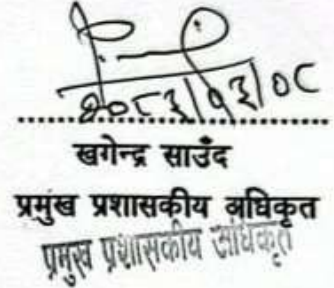 २०८३/०३/०८
खगेन्द्र साउँद
प्रमुख प्रशासकीय अधिकृत
प्रमुख प्रशासकीय अधिकृत